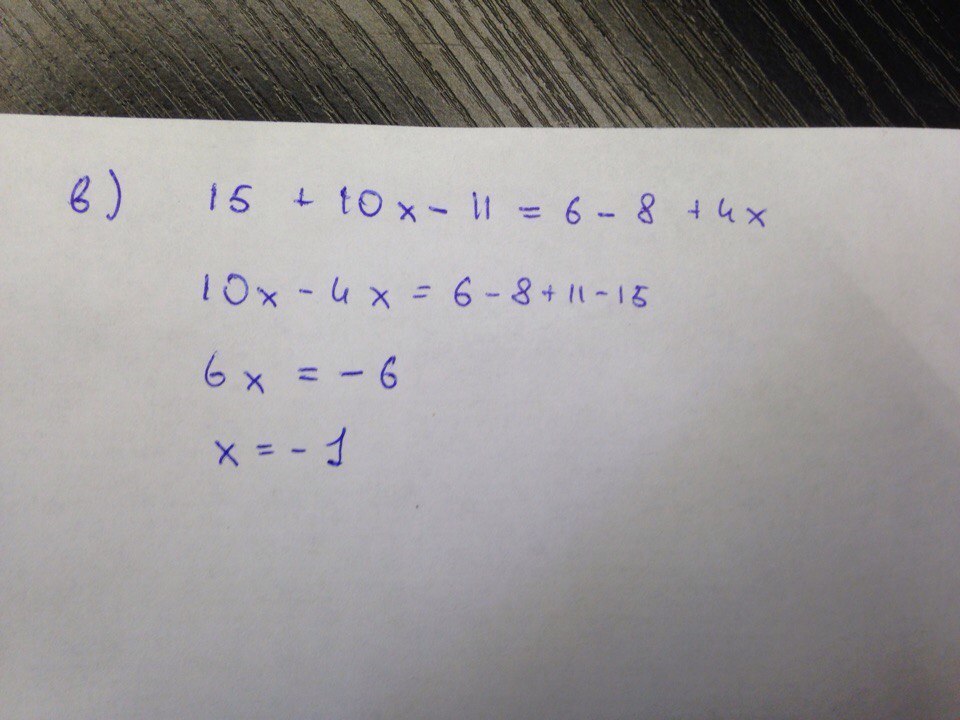 в) 15 + 10x - 11 = 6 - 8 + 4x
10x - 4x = 6 - 8 + 11 - 15
6x = - 6
x = - 1